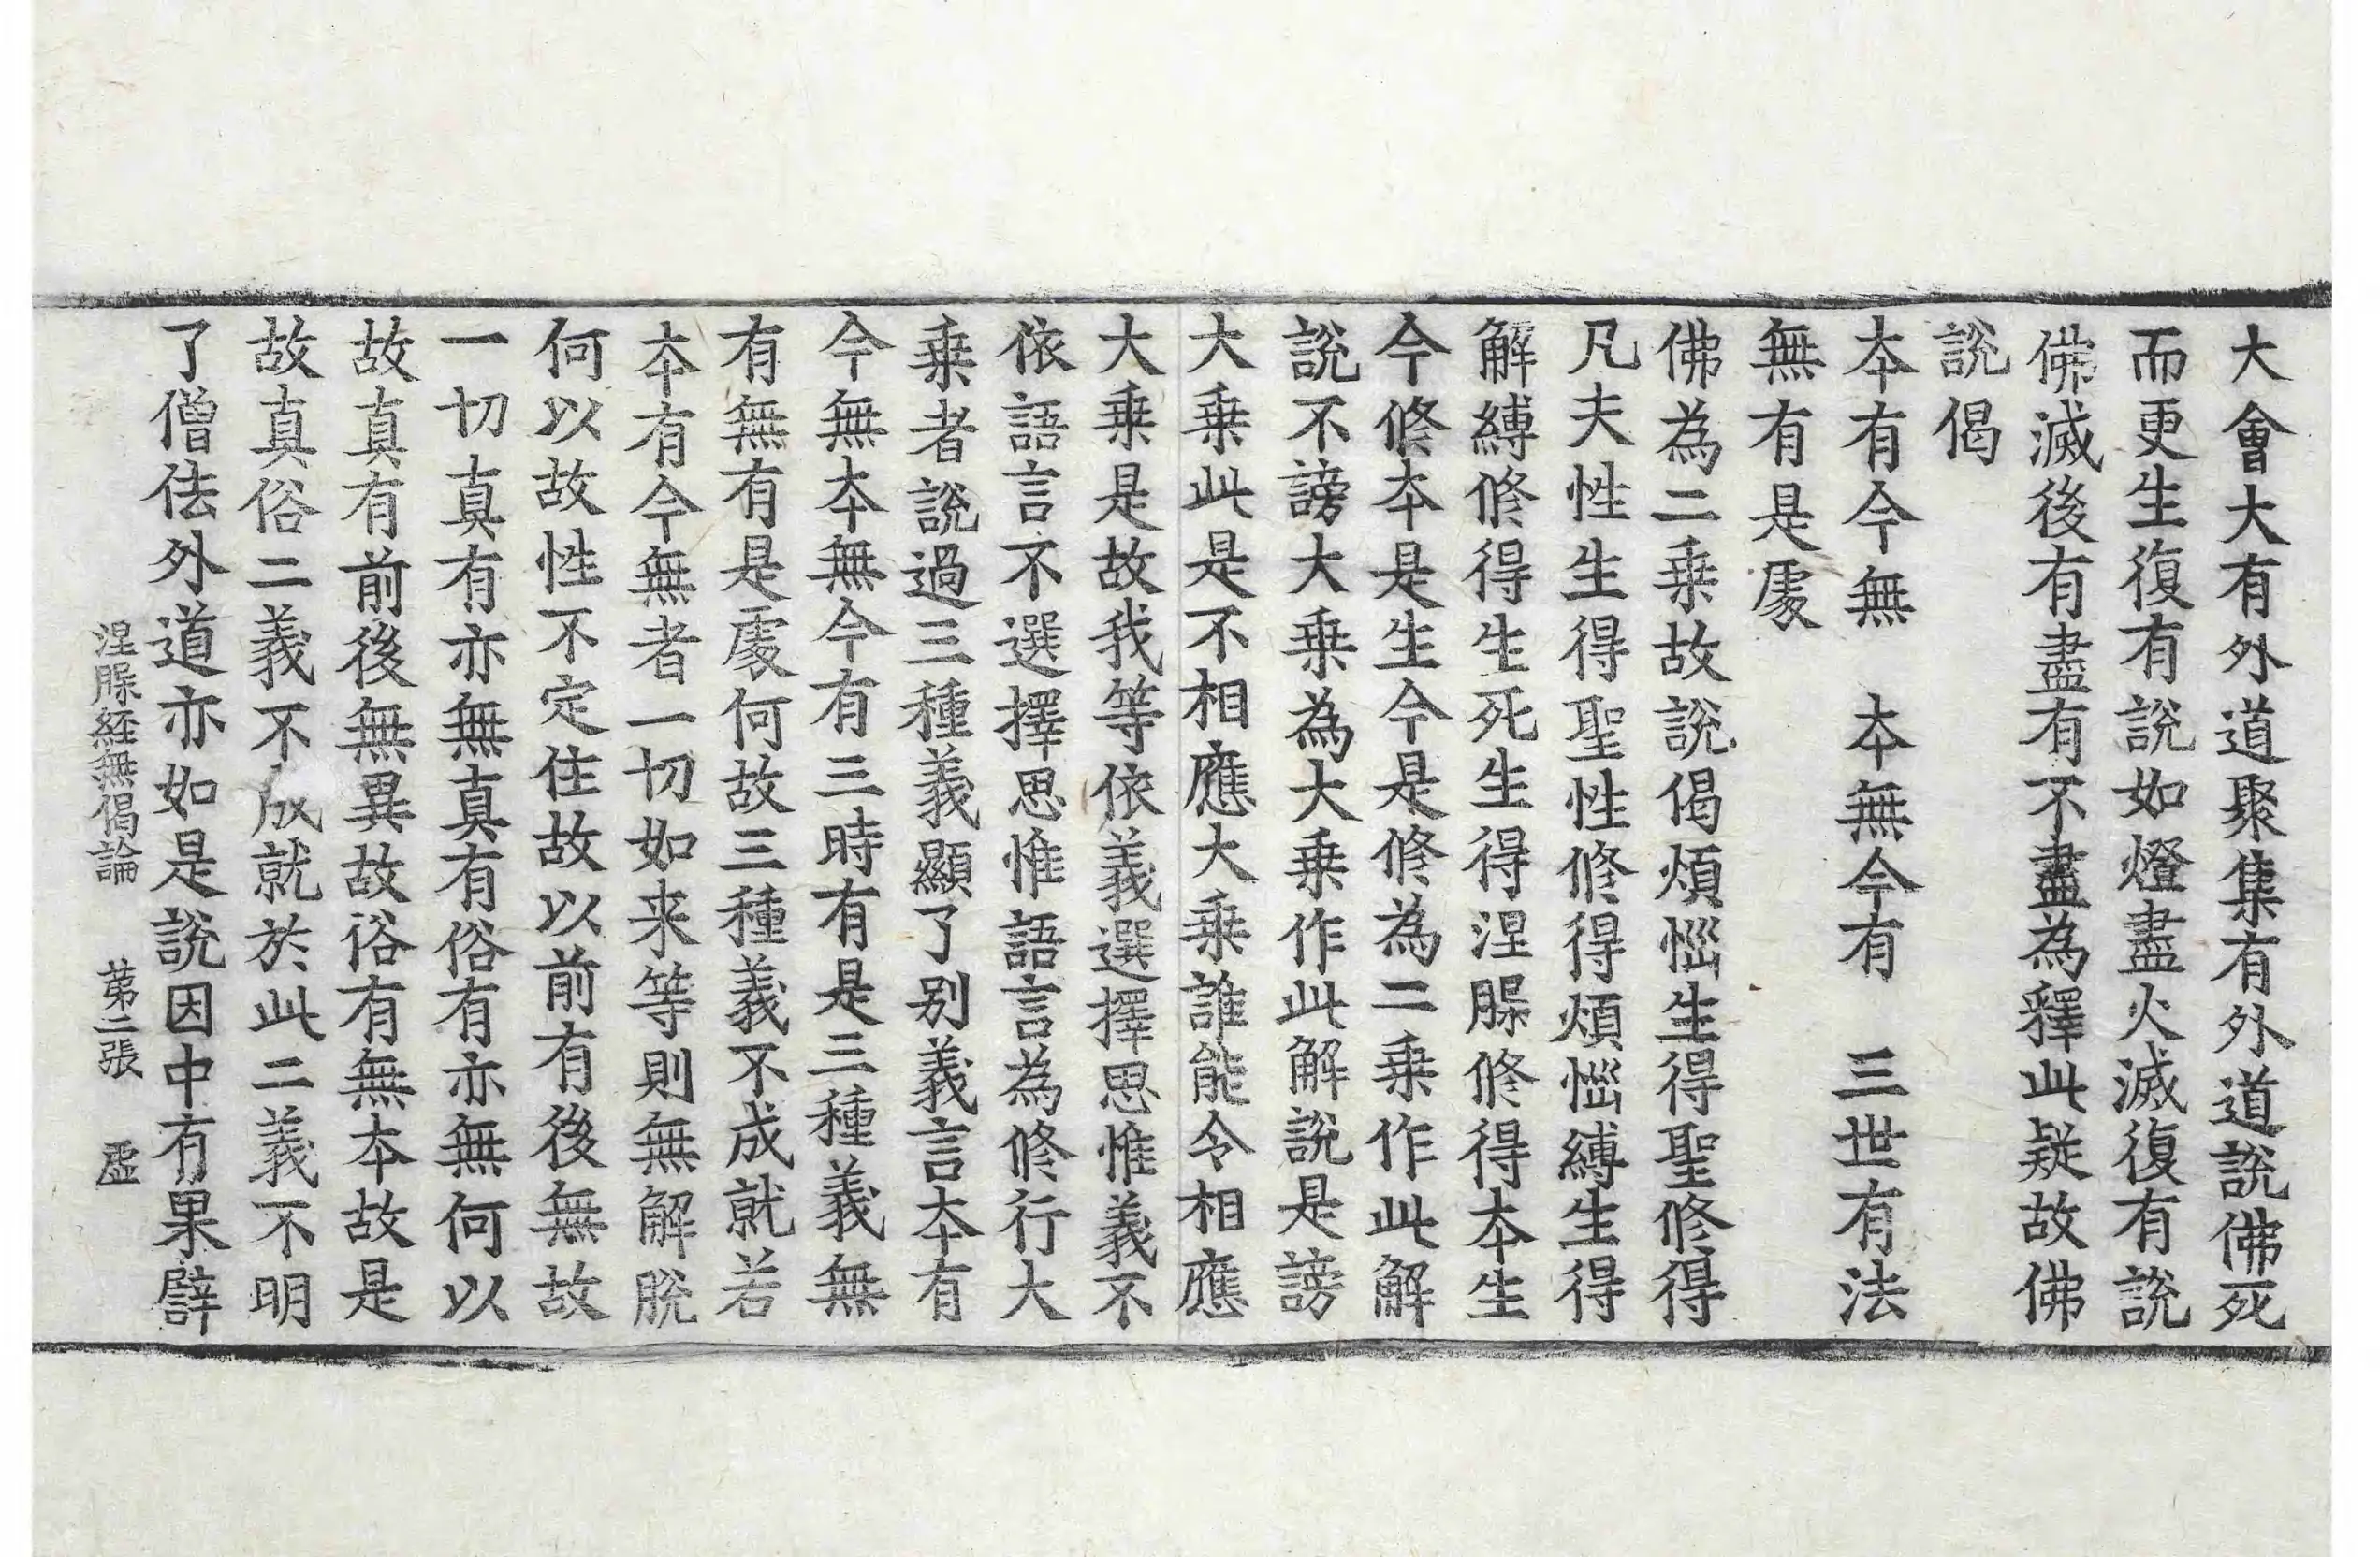 大會大有外道聚集有外道説佛死
而更生復有説如燈盡火滅復有説
佛滅後有盡有不盡為釋此疑故佛
説偈
本有今無　本無今有　三世有法
無有是處
佛為二乗故説偈煩惱生得聖修得
凡夫性生得聖性修得煩惱縛生得
解縛修得生死生得涅槃修得本生
今修本是生今是修為二乗作此解
説不謗大乗為大乗作此解説是謗
大乗此是不相應大乗誰能令相應
大乗是故我等依義選擇思惟義不
依語言不選擇思惟語言為修行大
乗者説過三種義顯了别義言本有
今無本無今有三時有是三種義無
有無有是處何故三種義不成就若
本有今無者一切如来等則無解脱
何以故性不定住故以前有後無故
一切真有亦無真有俗有亦無何以
故真有前後無異故俗有無本故是
故真俗二義不成就於此二義不明
了僧佉外道亦如是説因中有果譬
涅槃経無偈論　第二張　虚